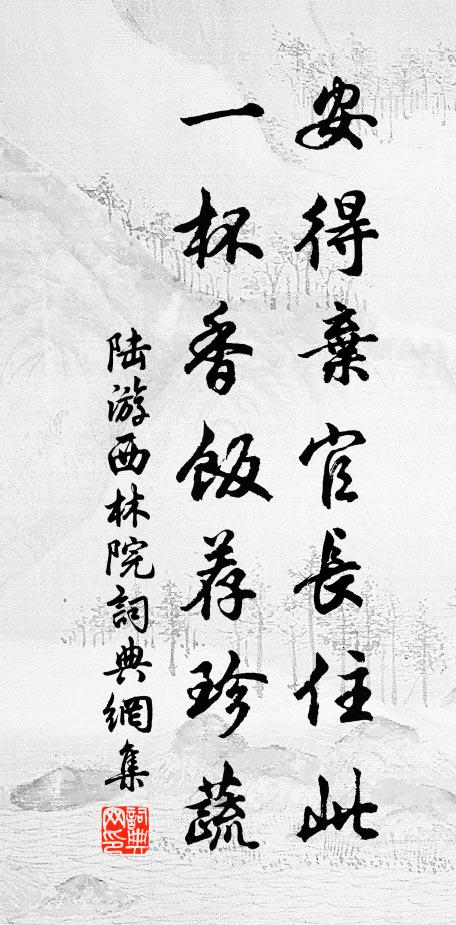 安得棄官長住此
一杯香飯荐珍蔬
陆游西林院詞典網集
詞典
网印